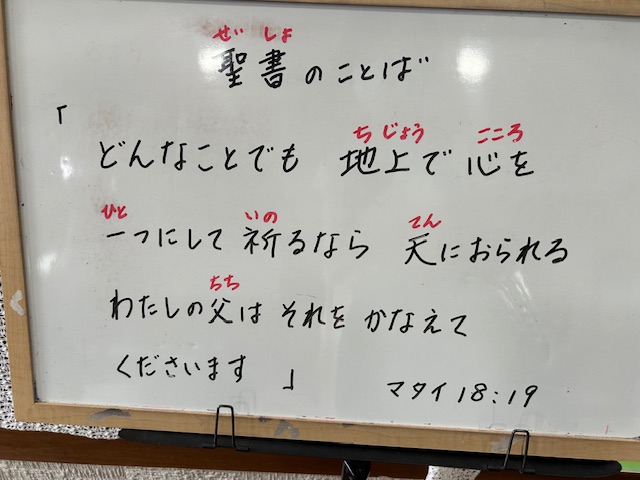 ぜい しょ
聖書のことば
「
ち じょう こころ
どんなことでも 地上で 心を
ひと いの てん
一つにして 祈るなら 天におられる
ちち
わたしの父は それを かなえて
くださいます 」
マタイ 18:19